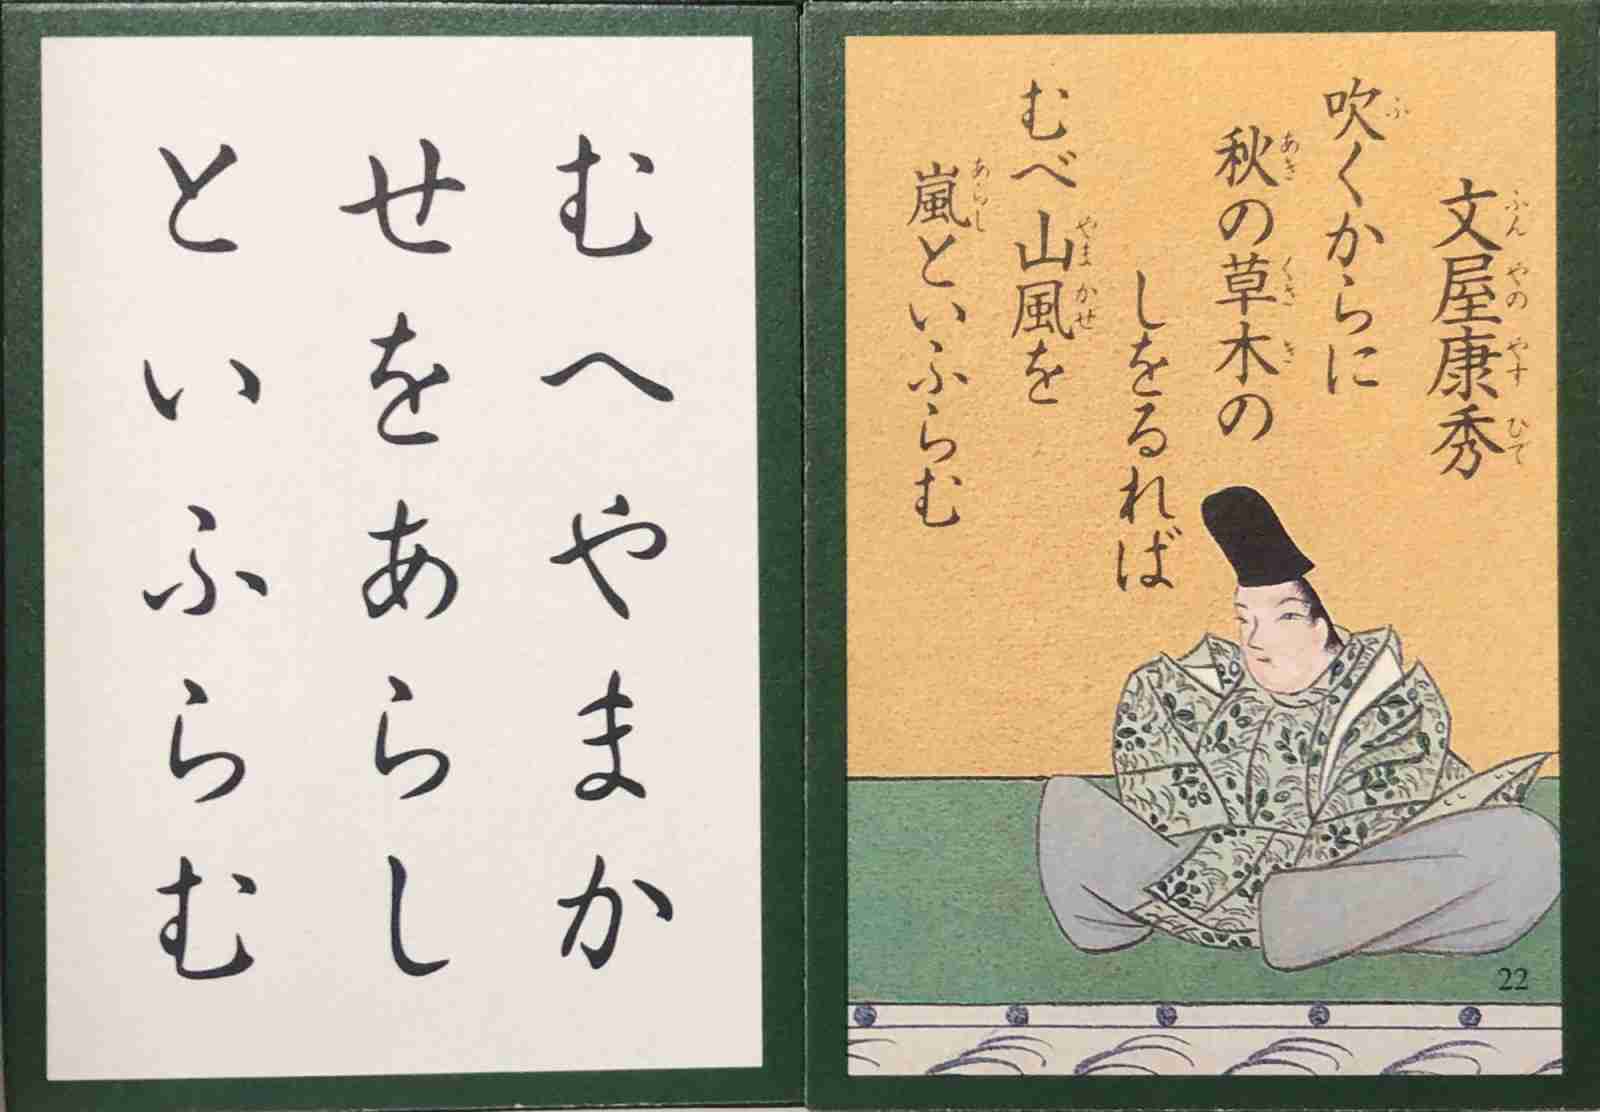 むへやまか
せをあらし
といふらむ
文屋康秀
ふんやのやすひで
吹くからに
ふ
秋の草木の
あきくさき
しをるれば
むべ山風を
やまかせ
嵐といふらむ
あらし
22